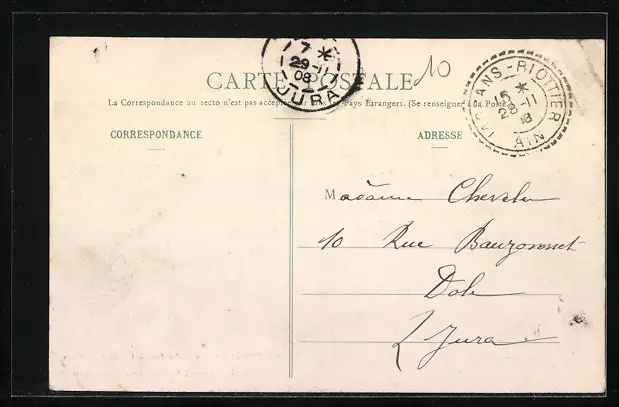 7 *
29-11
08
JURA
10
JASSANS-RIOTTIER
15 *
28-11
08
AIN
CARTE POSTALE
La Correspondance au recto n'est pas acceptée par tous les Pays Etrangers. (Se renseigner à la Poste)
CORRESPONDANCE
ADRESSE
Madame
10 Rue Bauzonnet
Dole
Jura